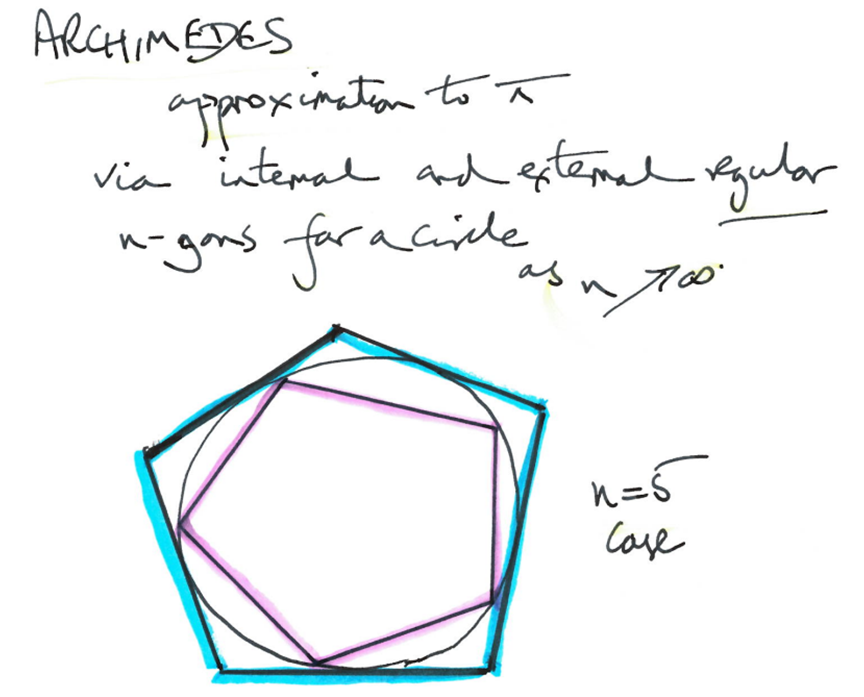 ARCHIMEDES
approximation to π
via internal and external regular
n-gons for a circle
as n ↗ ∞.
n=5
case